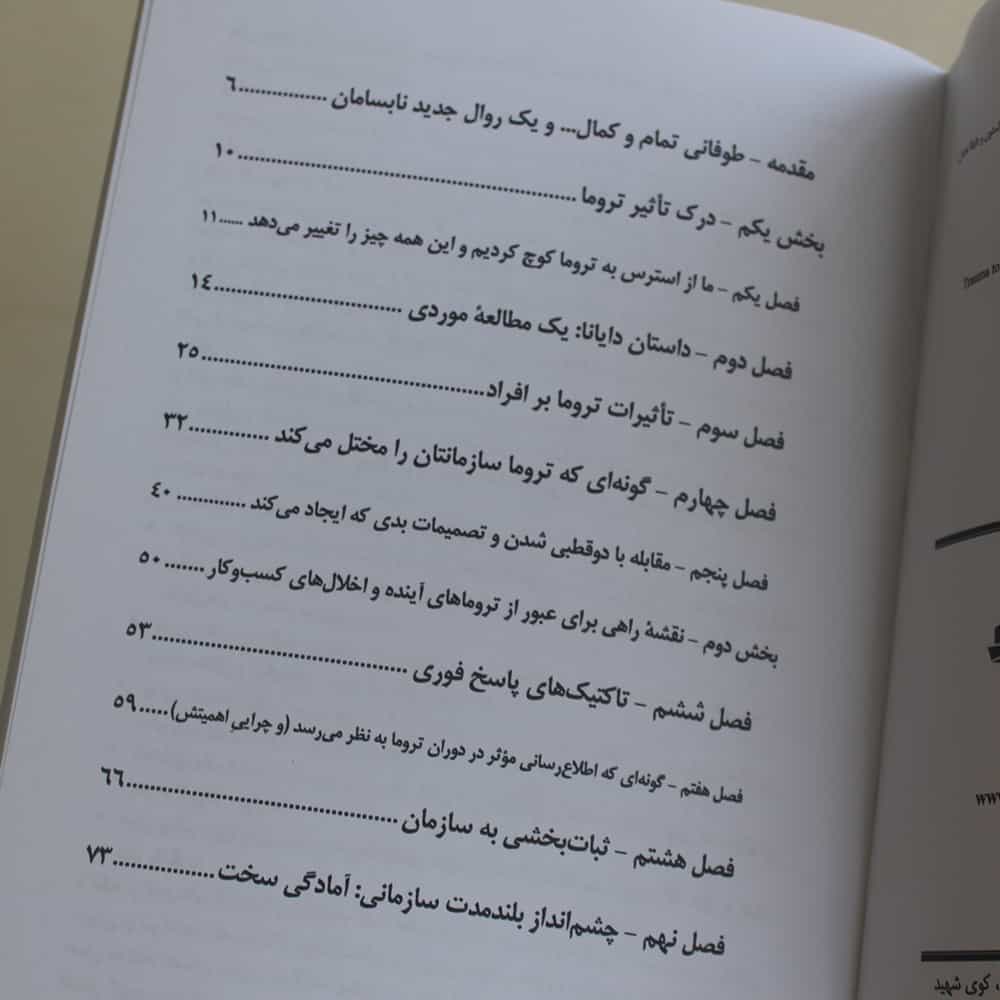 مقدمه – طوفانی تمام و کمال... و یک روال جدید نابسامان ................٦
بخش یکم – درک تأثیر تروما ............................................................١٠
فصل یکم – ما از استرس به تروما کوچ کردیم و این همه چیز را تغییر می‌دهد ......١١
فصل دوم – داستان دایانا: یک مطالعهٔ موردی .................................١٤
فصل سوم – تأثیرات تروما بر افراد..................................................٢٥
فصل چهارم – گونه‌ای که تروما سازمانتان را مختل می‌کند ..............٣٢
فصل پنجم – مقابله با دوقطبی شدن و تصمیمات بدی که ایجاد می‌کند ............٤٠
بخش دوم – نقشهٔ راهی برای عبور از تروماهای آینده و اخلال‌های کسب‌وکار .......٥٠
فصل ششم – تاکتیک‌های پاسخ فوری .............................................٥٣
فصل هفتم – گونه‌ای که اطلاع‌رسانی مؤثر در دوران تروما به نظر می‌رسد (و چراییِ اهمیتش).....٥٩
فصل هشتم – ثبات‌بخشی به سازمان ...............................................٦٦
فصل نهم – چشم‌انداز بلندمدت سازمانی: آمادگی سخت .................٧٣
Trauma
www
کوی شهید